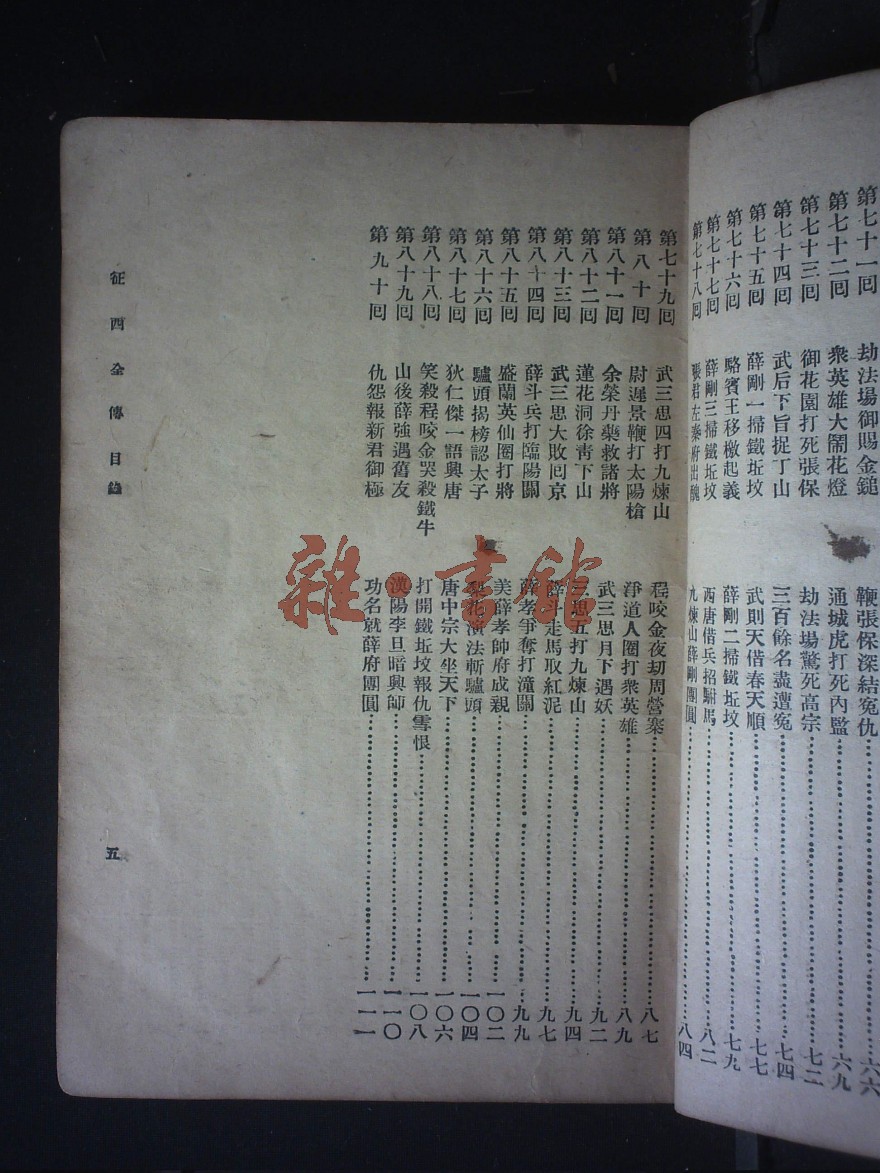 第七十一回 劫法場御賜金鎚 鞭張保深結寃仇 六六
第七十二回 衆英雄大鬧花燈 通城虎打死內監 六九
第七十三回 御花園打死張保 劫法場驚死高宗 七二
第七十四回 武后下旨捉丁山 三百餘名盡遭寃 七四
第七十五回 薛剛一掃鐵坵墳 武則天借春天順 七七
第七十六回 駱賓王移檄起義 薛剛二掃鐵坵墳 七九
第七十七回 薛剛三掃鐵坵墳 西唐借兵招駙馬 八二
第七十八回 張君左秦府出醜 九煉山薛剛團圓 八四
第七十九回 武三思四打九煉山 程咬金夜刧周營寨 八七
第八十回 尉遲景鞭打太陽槍 淨道人圈打衆英雄 八九
第八十一回 余榮丹藥救諸將 武三思月下遇妖 九二
第八十二回 蓮花洞徐青下山 三思五打九煉山 九四
第八十三回 武三思大敗囘京 薛斗走馬取紅泥 九七
第八十四回 薛斗兵打臨陽關 薛孝爭奪打潼關 九九
第八十五回 盛蘭英仙圈打將 美薛孝帥府成親 一〇二
第八十六回 驢頭揭榜認太子 梨花演法斬驢頭 一〇四
第八十七回 狄仁傑一語興唐 唐中宗大坐天下 一〇六
第八十八回 笑殺程咬金哭殺鐵牛 打開鐵坵墳報仇雪恨 一〇八
第八十九回 山後薛強遇舊友 漢陽李旦暗興師 一一〇
第九十回 仇怨報新君御極 功名就薛府團圓 一一一
征西全傳目錄
五
雜·書館